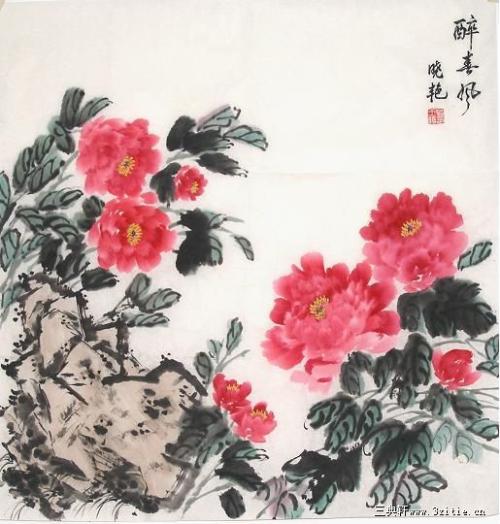 醉喜风
晓艳
三典轩www.3zitie.cn